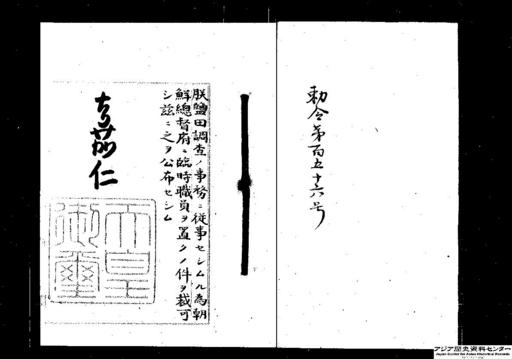 勅令第百五十六号
朕鹽田調査ノ事務ニ從事セシムル為朝
鮮總督府ニ臨時職員ヲ置クノ件ヲ裁可
シ茲ニ之ヲ公布セシム
嘉仁
天皇
御璽
アジア歴史資料センター
Japan Center for Asian Historical Records